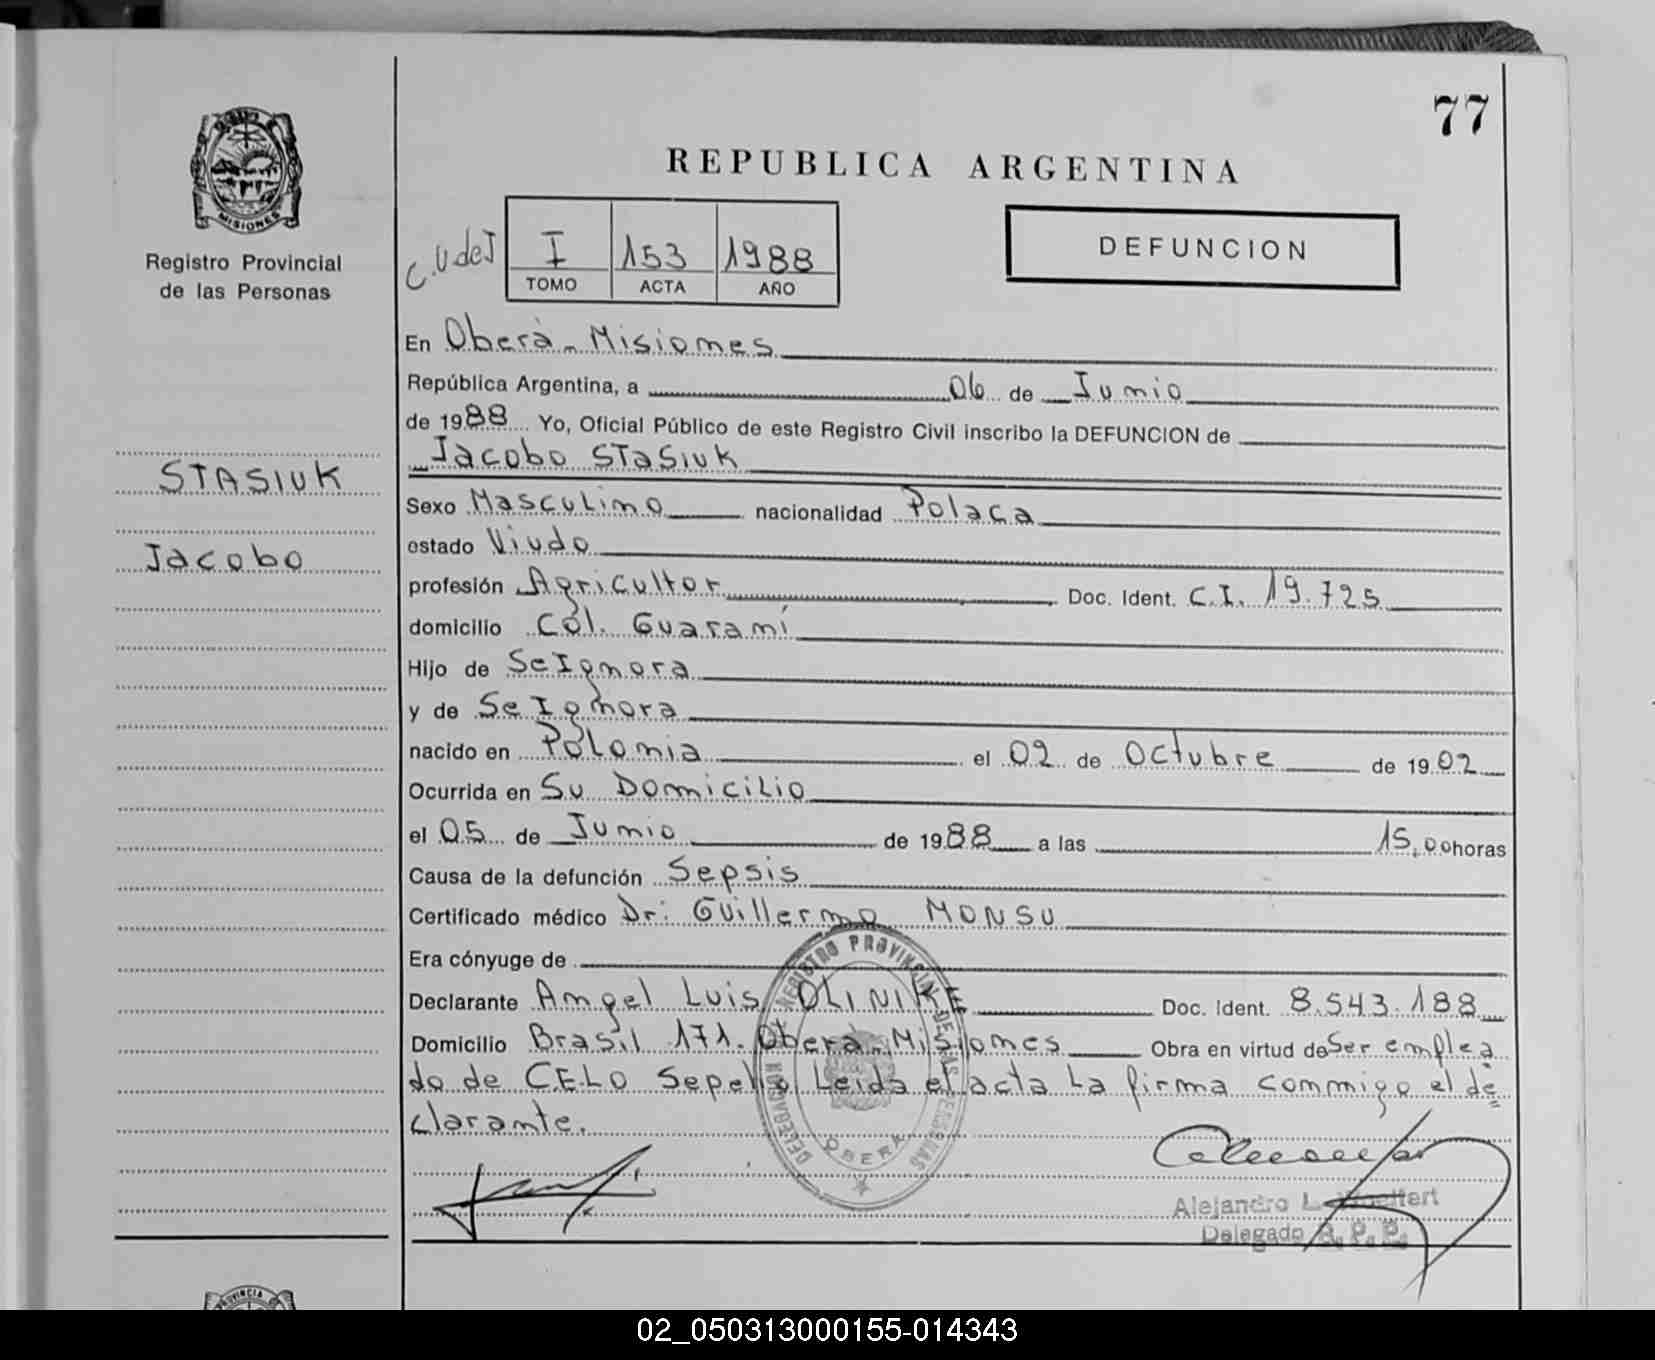 77
REPUBLICA ARGENTINA
MISIONES
Registro Provincial
de las Personas
C.U de J
I 153 1988
TOMO ACTA AÑO
DEFUNCION
En Oberà - Misiones
República Argentina, a 06 de Junio
de 1988 Yo, Oficial Público de este Registro Civil inscribo la DEFUNCION de
Jacobo STASIUK
STASIUK
Jacobo
Sexo Masculino nacionalidad Polaca
estado Viudo
profesión Agricultor Doc. Ident. C.I. 19.725
domicilio Col. Guaraní
Hijo de Se Ignora
y de Se Ignora
nacido en Polonia el 02 de Octubre de 1902
Ocurrida en Su Domicilio
el 05 de Junio de 1988 a las 15,00 horas
Causa de la defunción Sepsis
Certificado médico Dr: Guillermo MONSU
Era cónyuge de
Declarante Angel Luis OLINIKE Doc. Ident. 8.543.188
Domicilio Brasil 171. Obera. Misiones Obra en virtud de Ser emplea
do de CELO Sepelio Leida el acta La firma conmigo el de"
clarante.
DELEGACION REGISTRO PROVINCIAL DE LAS PERSONAS
OBERA
Alejandro L.
Delegado R. P. P.
PROVINCIA
02_050313000155-014343